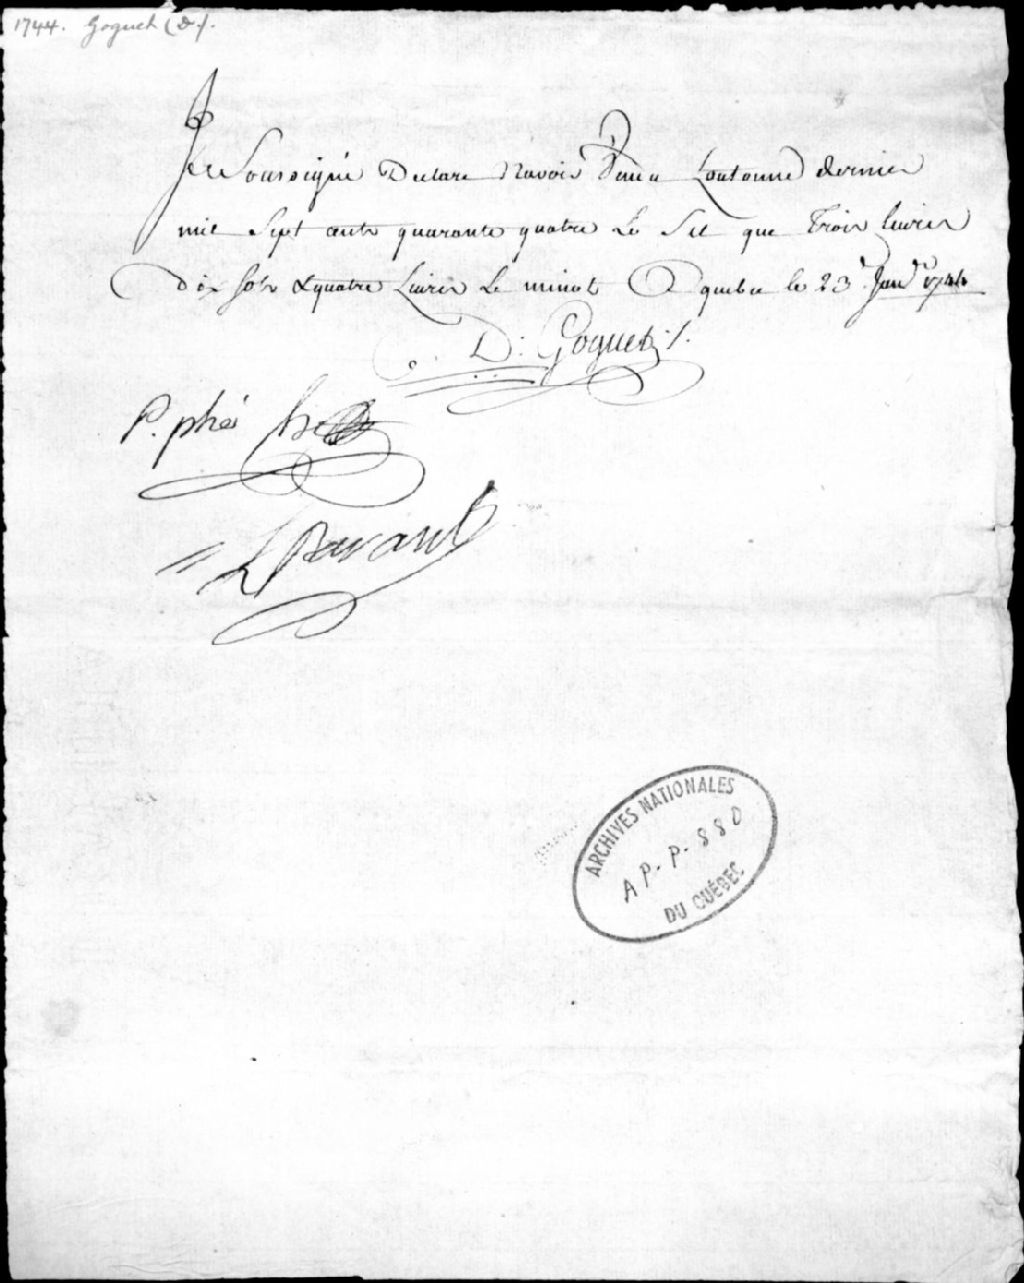 1744. Goguet (D).
Je Soussigné Declare N'avoir Vendu Lautonne dernier
mil Sept cents quarante quatre Le Sel que Trois Livres
dix sols & quatre Livres Le minot A quebec le 23 Janv 1744
D: Goguet
P. phéi
Pacaud
ARCHIVES NATIONALES
A P. P. 880
DU QUÉBEC